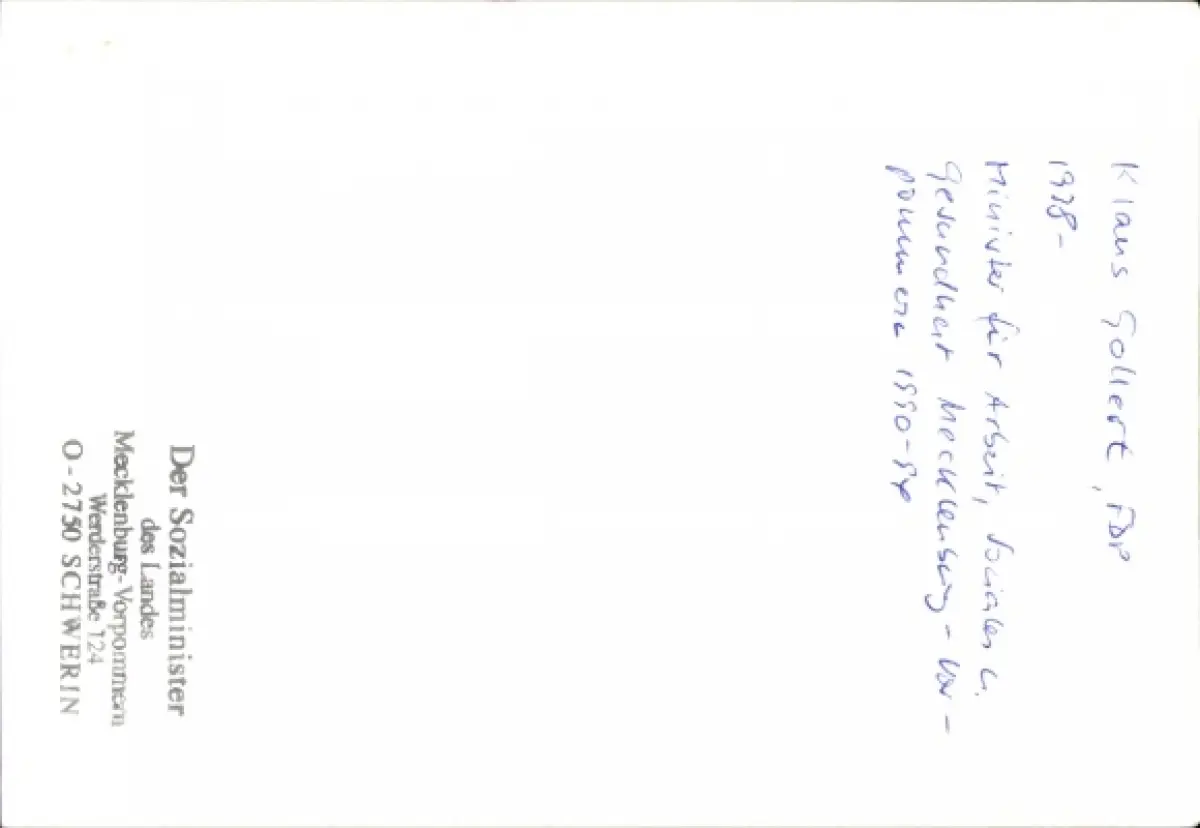 Klaus Gollert, FDP
1938-
Minister für Arbeit, Soziales u.
Gesundheit Mecklenburg-Vor-
pommern 1990-94
Der Sozialminister
des Landes
Mecklenburg-Vorpommern
Werderstraße 124
O - 2750 SCHWERIN